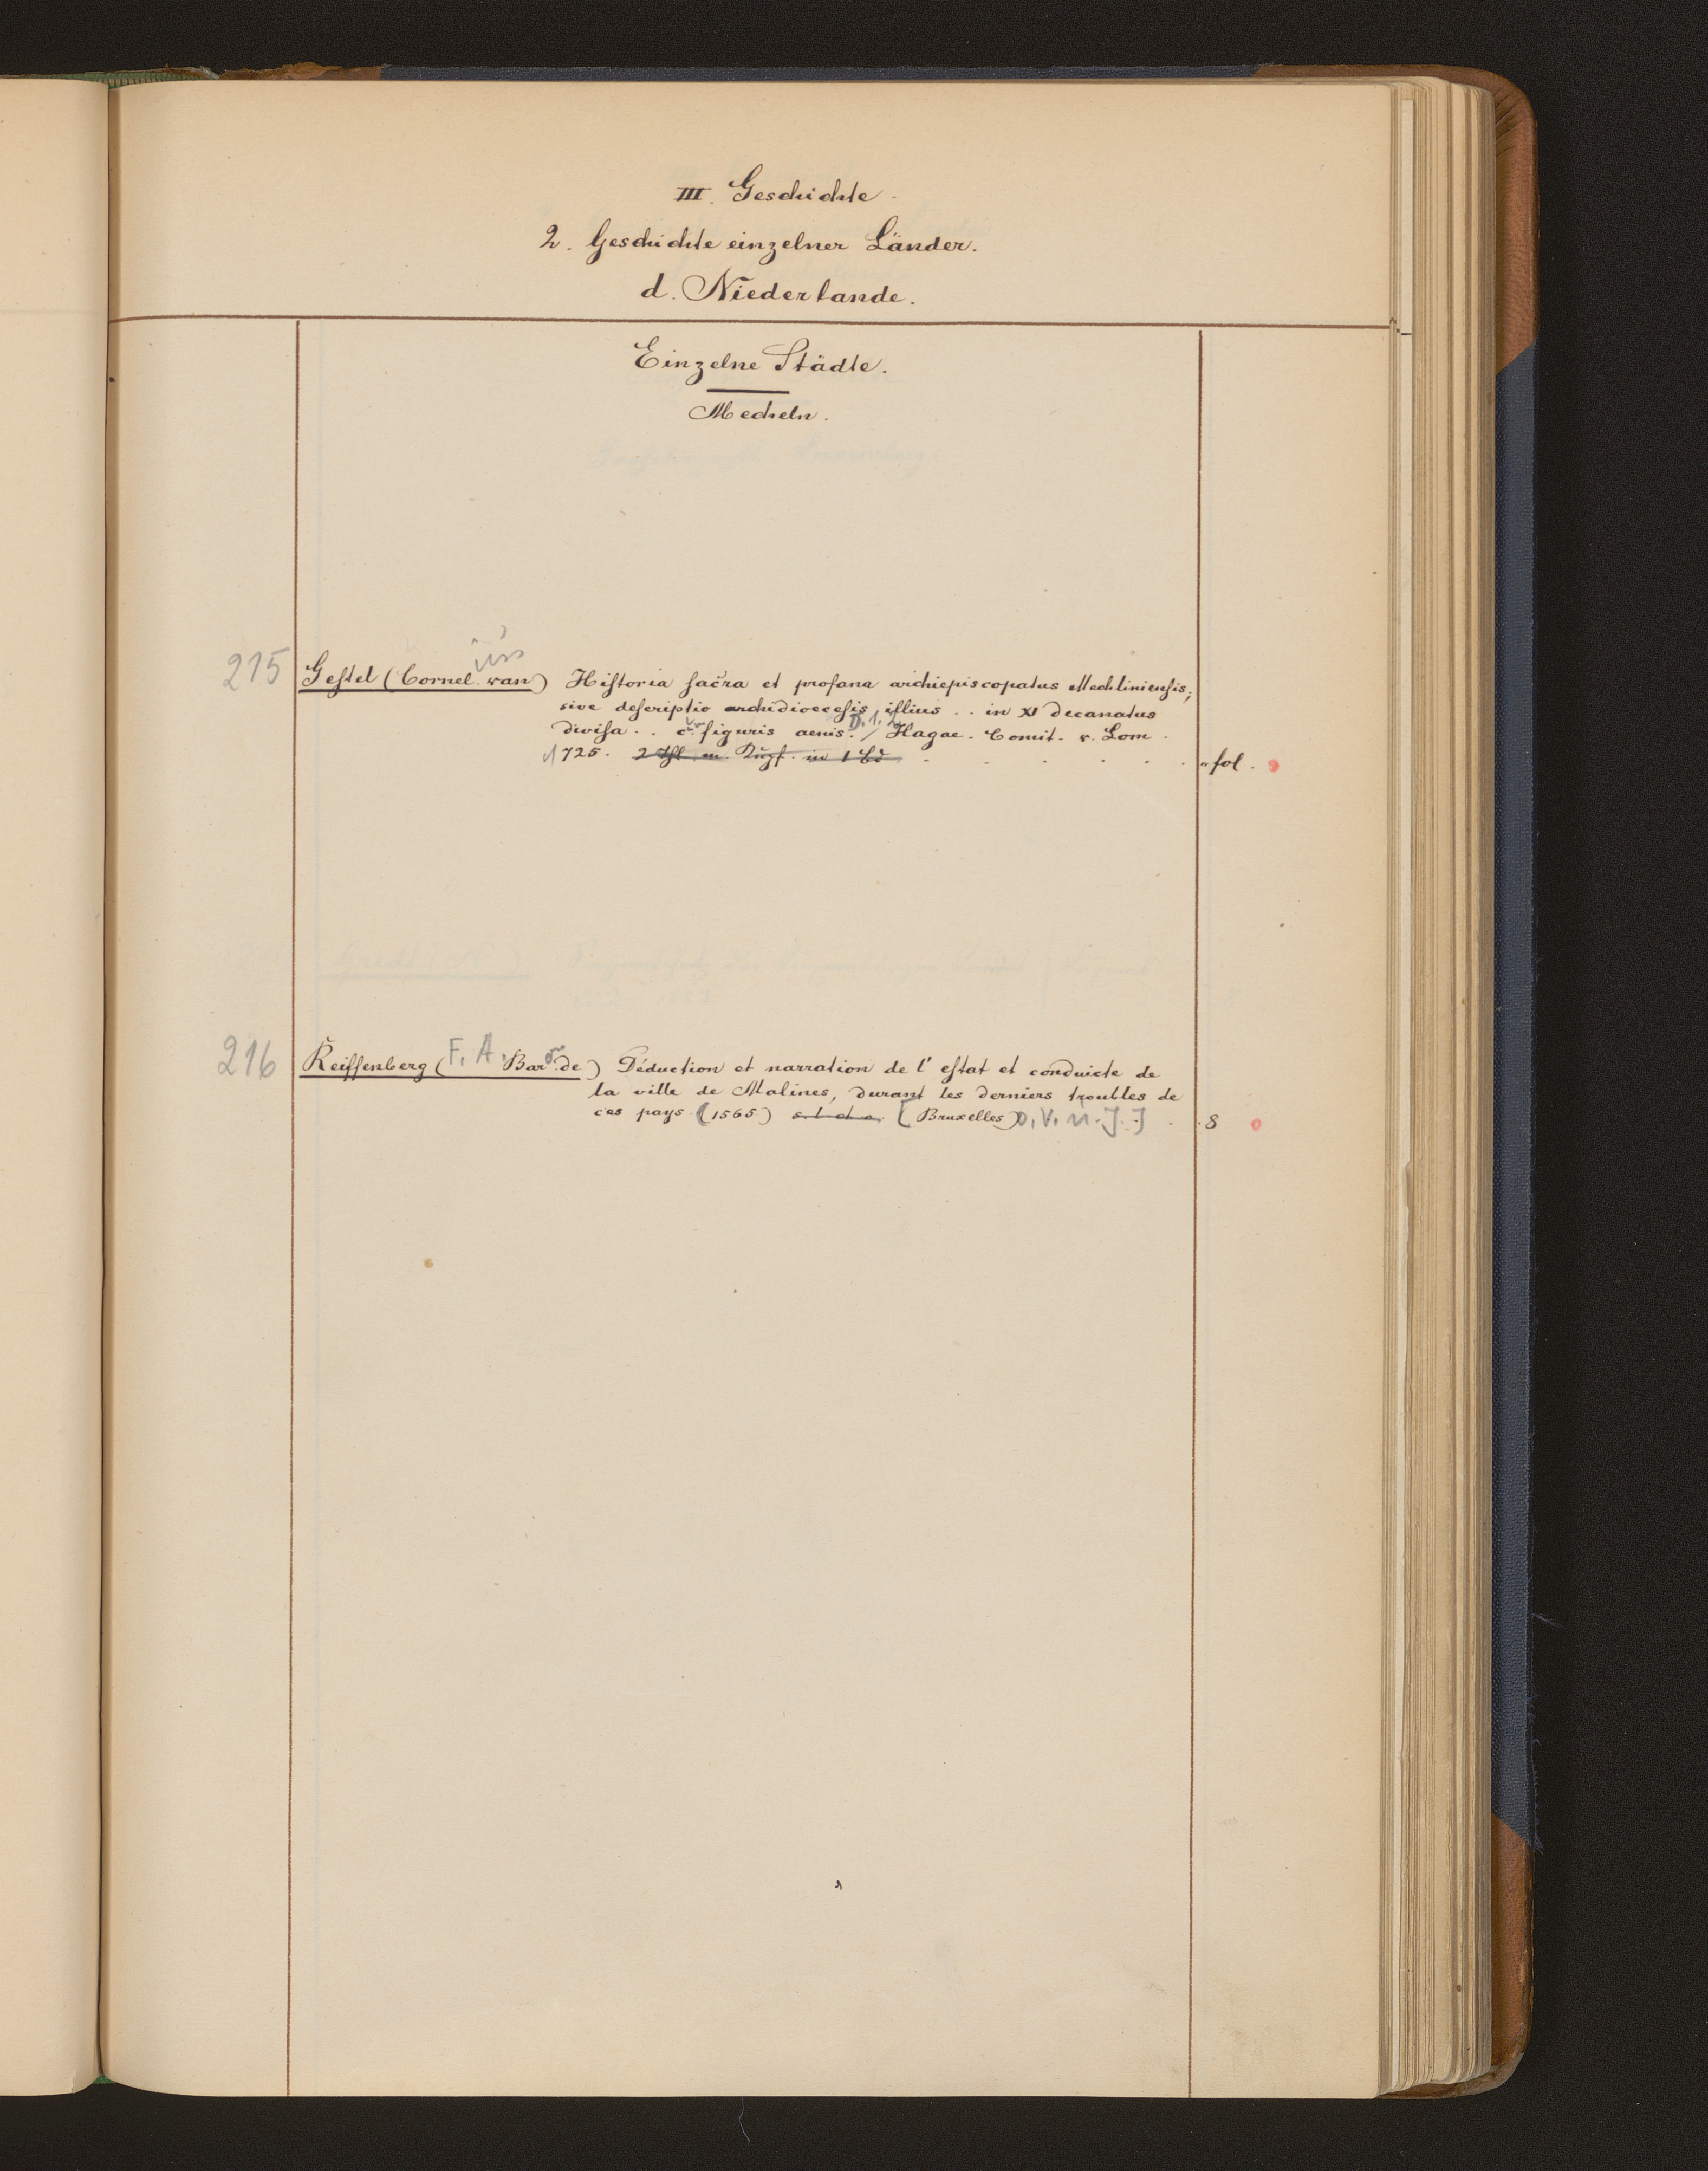 III. Geschichte.
2. Geschichte einzelner Länder.
d. Niederlande.
Einzelne Städte.
Mecheln.
215 Gestel (Cornelius van) Historia sacra et profana archiepiscopatus Mechliniensis;
sive descriptio archidioecesis illius . . in XI decanatus
divisa . . c. figuris aenis. Hagae. Comit. v. Lom.
1725. 2 Thl. m. Kupf. in 1 Bd . . . . . . fol.
216 Reiffenberg (F. A. Baron de) Déduction et narration de l'estat et conduicte de
la ville de Malines, durant les derniers troubles de
ces pays (1565) s. l. et a. [Bruxelles) O. V. u. J.] . . 8